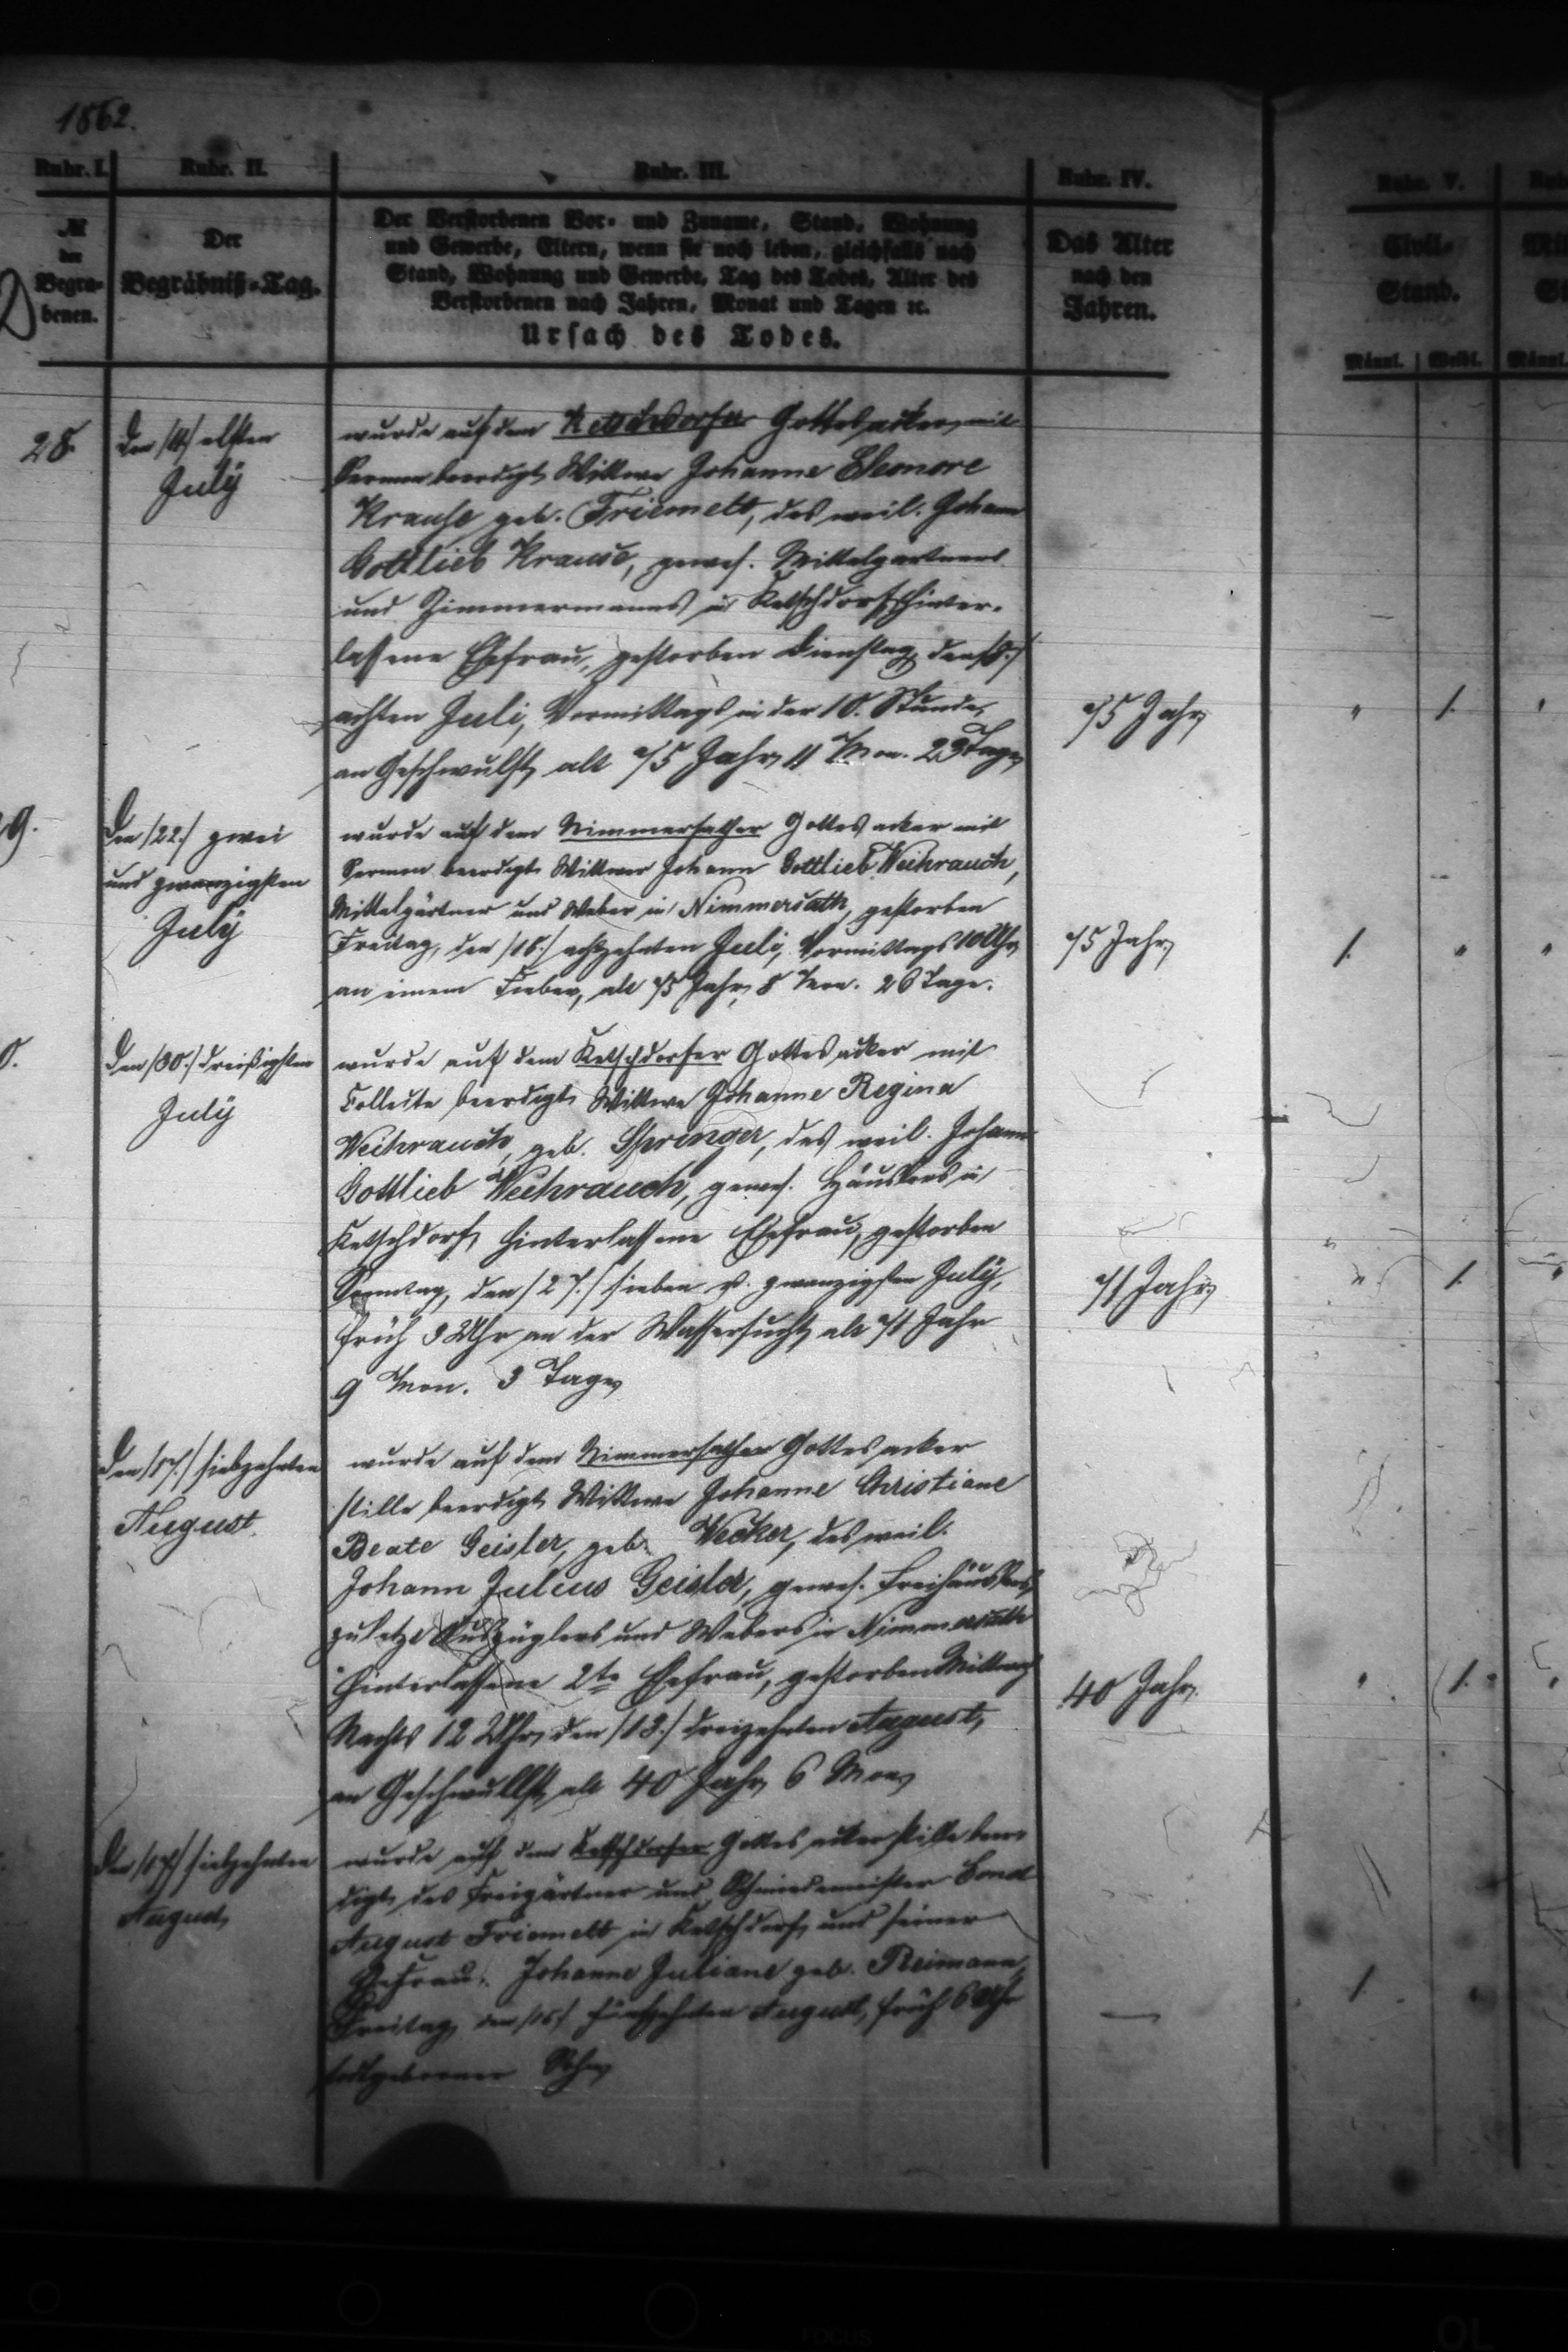 1862.
Rubr. I.
Rubr. II.
Rubr. III.
Rubr. IV.
Rubr. V.
№
der
Begra-
benen.
Der
Begräbniß-Tag.
Der Verstorbenen Vor- und Zuname, Stand, Wohnung
und Gewerbe, Eltern, wenn sie noch leben, gleichfalls nach
Stand, Wohnung und Gewerbe, Tag des Todes, Alter des
Verstorbenen nach Jahren, Monat und Tagen ec.
Ursach des Todes.
Das Alter
nach den
Jahren.
Civil-
Stand.
Männl.
Weibl.
Männl.
28.
den /11/ elften
July
wurde auf dem Ketschdorfer Gottesacker mit
Sermon beerdigt Wittwe Johanne Eleonore
Krause geb. Friemelt, des weil. Johann
Gottlieb Krause, gewes. Mittelgärtners
und Zimmermanns in Ketschdorf hinter-
lassene Ehefrau, gestorben Dienstag, den /8./
achten Juli, Vormittags in der 10. Stunde,
an Geschwulst, alt 75 Jahr 11 Mon. 23 Tage
75 Jahr
" 1. "
9.
den /22./ zwei
und zwanzigsten
July
wurde auf dem Nimmersather Gottesacker mit
Sermon beerdigt Wittwer Johann Gottlieb Weihrauch,
Mittelgärtner und Weber in Nimmersath, gestorben
Freitag, den /18./ achtzehnten Juli, Vormittags 10 Uhr,
an einem Fieber, alt 75 Jahr, 8 Mon. 26 Tage.
75 Jahr
1. " "
0.
den /30./ dreißigsten
July
wurde auf dem Ketschdorfer Gottesacker mit
Collecte beerdigt Wittwe Johanne Regina
Weihrauch, geb. Springer, des weil. Johann
Gottlieb Weihrauch, gewes. Häuslers in
Ketschdorf, hinterlassene Ehefrau, gestorben
Sonntag, den /27./ sieben u. zwanzigsten July,
früh 3 Uhr an der Wassersucht, alt 71 Jahr
9 Mon. 3 Tage
71 Jahr
" 1. "
den /17./ siebzehnten
August.
wurde auf dem Nimmersather Gottesacker
stille beerdigt Wittwe Johanne Christiane
Beate Geisler, geb. Wecker, des weil.
Johann Julius Geisler, gewes. Freihäuslers,
zuletzt Auszüglers und Webers in Nimmersath
hinterlassene 2te Ehefrau, gestorben Mittwoch
Nachts 12 Uhr, den /13./ dreizehnten August,
an Geschwulst, alt 40 Jahr, 6 Mon.
40 Jahr.
" 1. "
den /17/ siebzehnten
August,
wurde auf dem Ketschdorfer Gottesacker stille beer-
digt, des Freigärtner und Schmiedemeister
August Friemelt in Ketschdorf, und seiner
Ehefrau Johanne Juliane geb. Reimann,
Freitag, den /15/ fünfzehnten August, früh 6 Uhr
todtgeborner Sohn
—
1